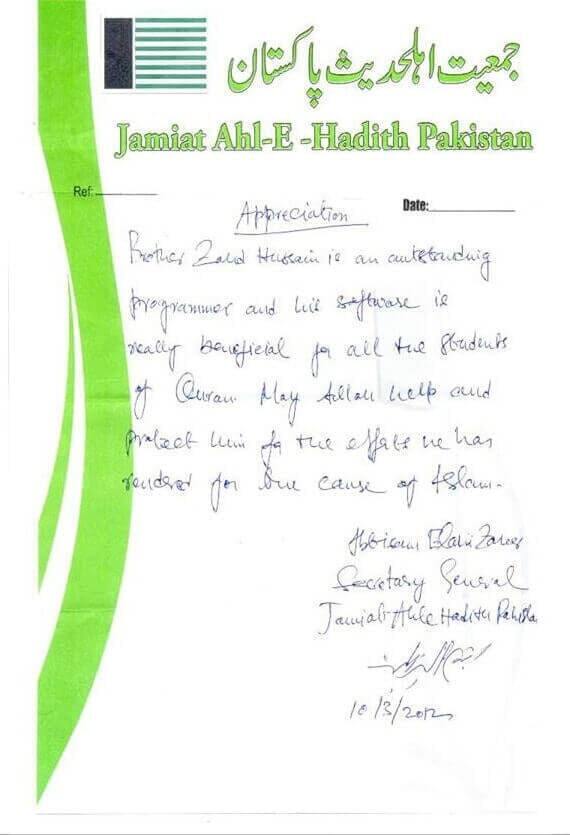 جمعیت اہلحدیث پاکستان
Jamiat Ahl-E -Hadith Pakistan
Ref:
Date:
Appreciation
Brother Zahid Hussain is an outstanding
programmer and his software is
really beneficial for all the students
of Quran May Allah help and
protect him for the efforts he has
rendered for the cause of Islam.
Elahi Zaheer
Secretary General
Jamiat Ahle Hadith Pakistan
10/3/2012